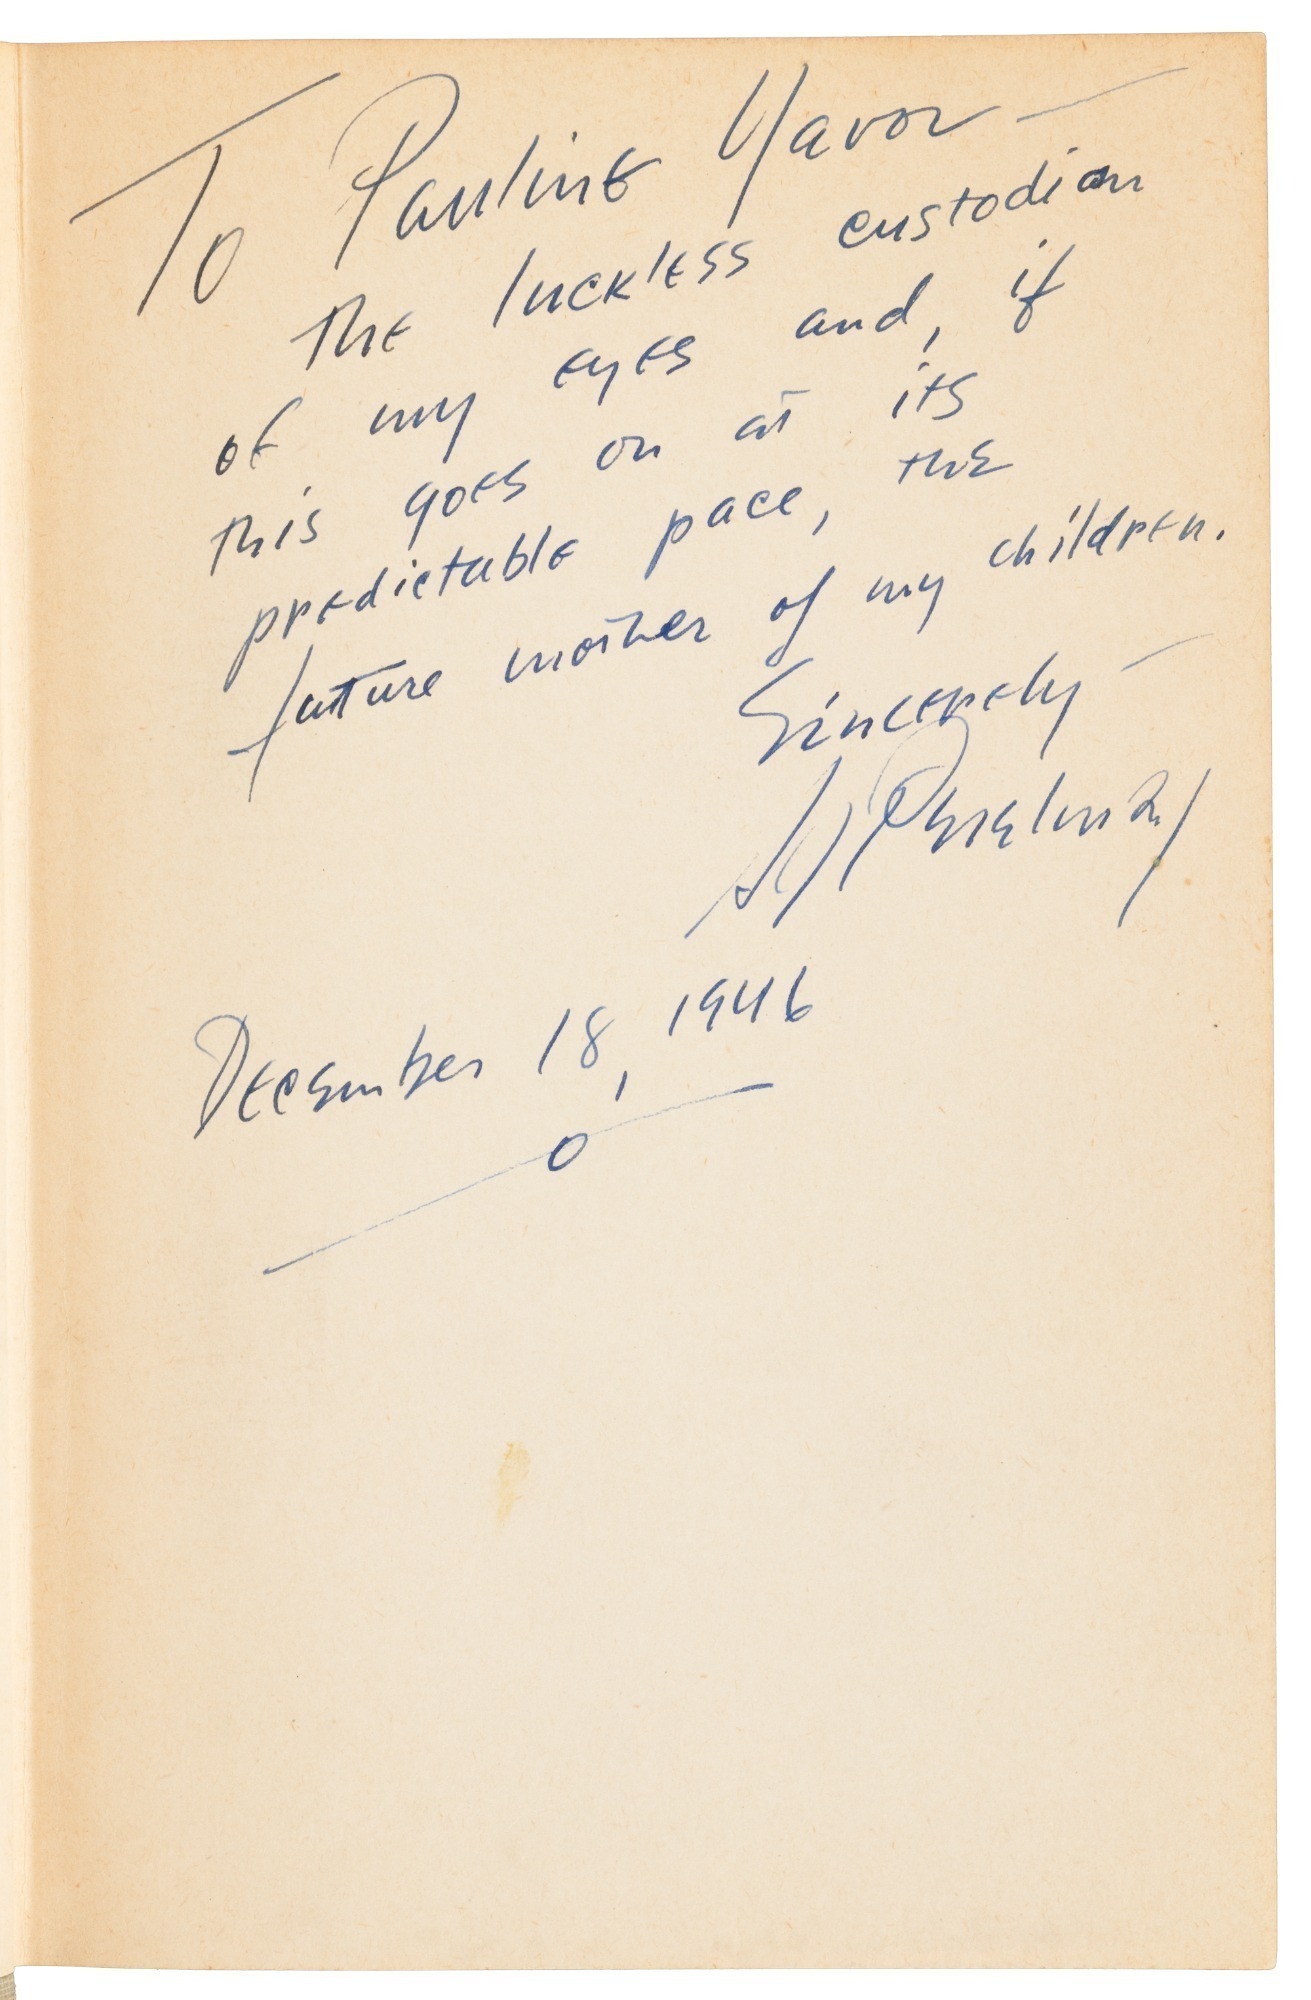 To Pauline Yavor —
The luckless custodian
of my eyes and, if
this goes on at its
predictable pace, the
future mother of my children.
Sincerely —
SJ Perelman
December 18, 1946